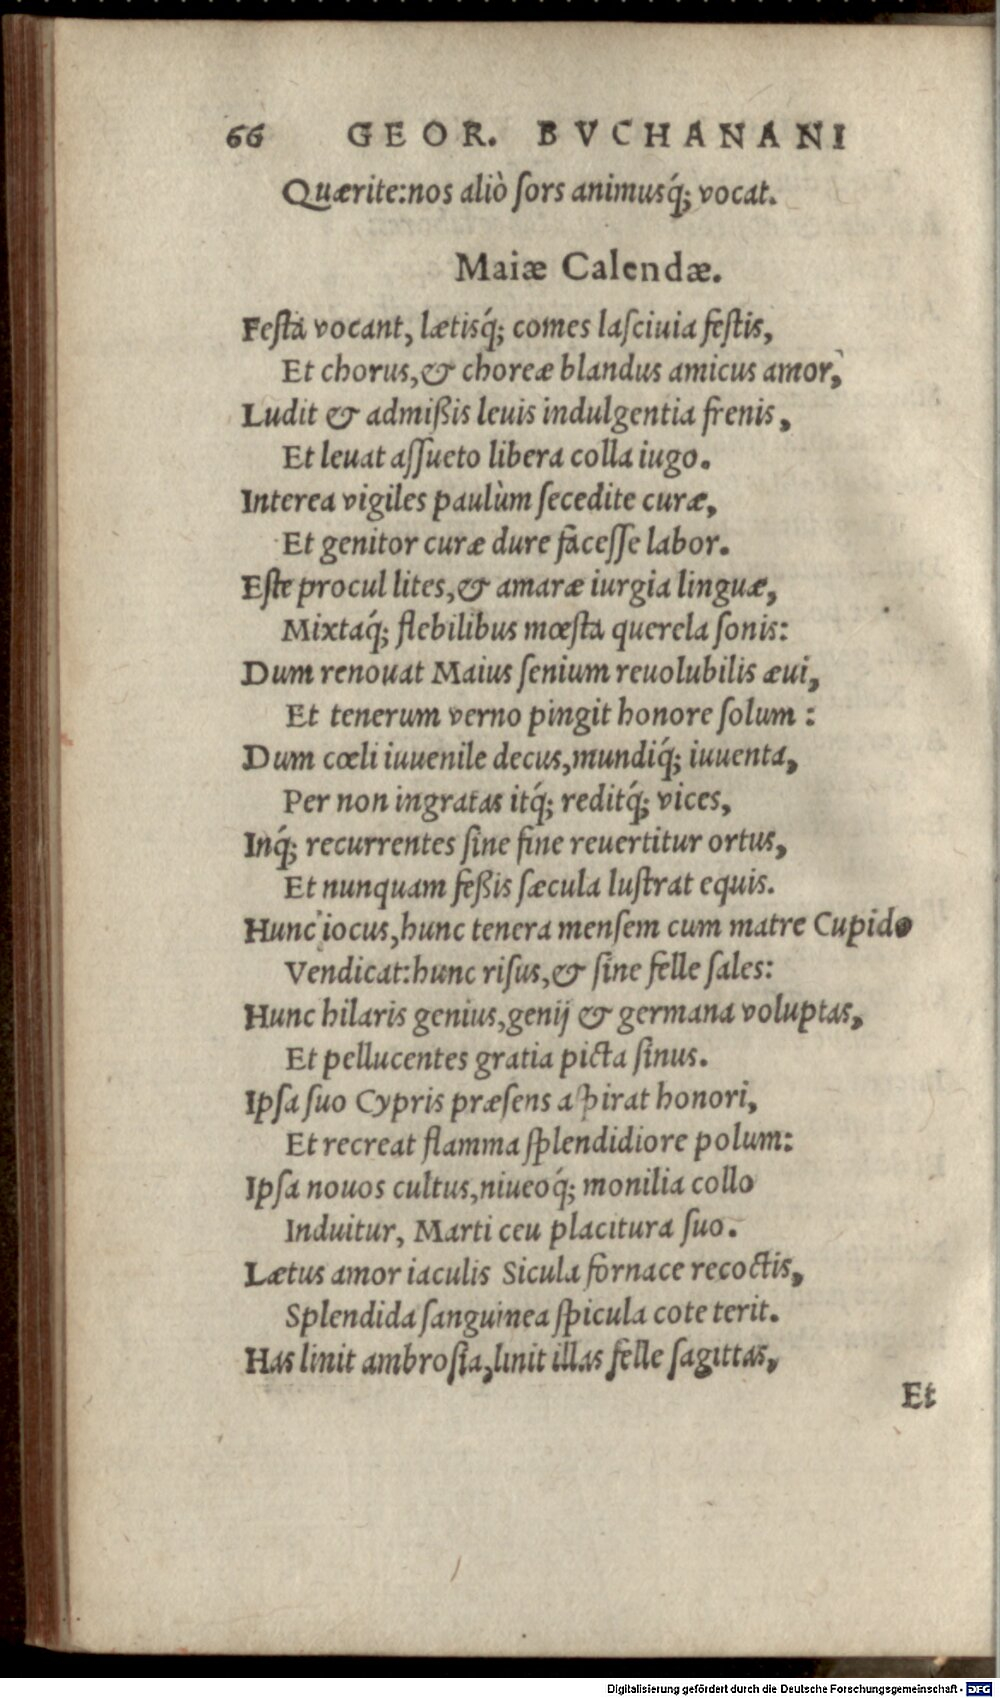 66 GEOR. BVCHANANI
Quærite:nos aliò ſors animusq́; vocat.
Maiæ Calendæ.
Feſta vocant, lætisq́; comes laſciuia feſtis,
Et chorus,& choreæ blandus amicus amor,
Ludit & admißis leuis indulgentia frenis,
Et leuat aſſueto libera colla iugo.
Interea vigiles paulùm ſecedite curæ,
Et genitor curæ dure faceſſe labor.
Eſte procul lites,& amaræ iurgia linguæ,
Mixtaq́; flebilibus mœſta querela ſonis:
Dum renouat Maius ſenium reuolubilis æui,
Et tenerum verno pingit honore ſolum :
Dum cœli iuuenile decus,mundiq́; iuuenta,
Per non ingratas itq́; reditq́; vices,
Inq́; recurrentes ſine fine reuertitur ortus,
Et nunquam feßis ſæcula luſtrat equis.
Hunc iocus,hunc tenera menſem cum matre Cupido
Vendicat:hunc riſus,& ſine felle ſales:
Hunc hilaris genius,genij & germana voluptas,
Et pellucentes gratia picta ſinus.
Ipſa ſuo Cypris præſens aſpirat honori,
Et recreat flamma ſplendidiore polum:
Ipſa nouos cultus,niueoq́; monilia collo
Induitur, Marti ceu placitura ſuo.
Lætus amor iaculis Sicula fornace recoctis,
Splendida ſanguinea ſpicula cote terit.
Has linit ambroſia,linit illas felle ſagittas,
Et
Digitalisierung gefördert durch die Deutsche Forschungsgemeinschaft - DFG